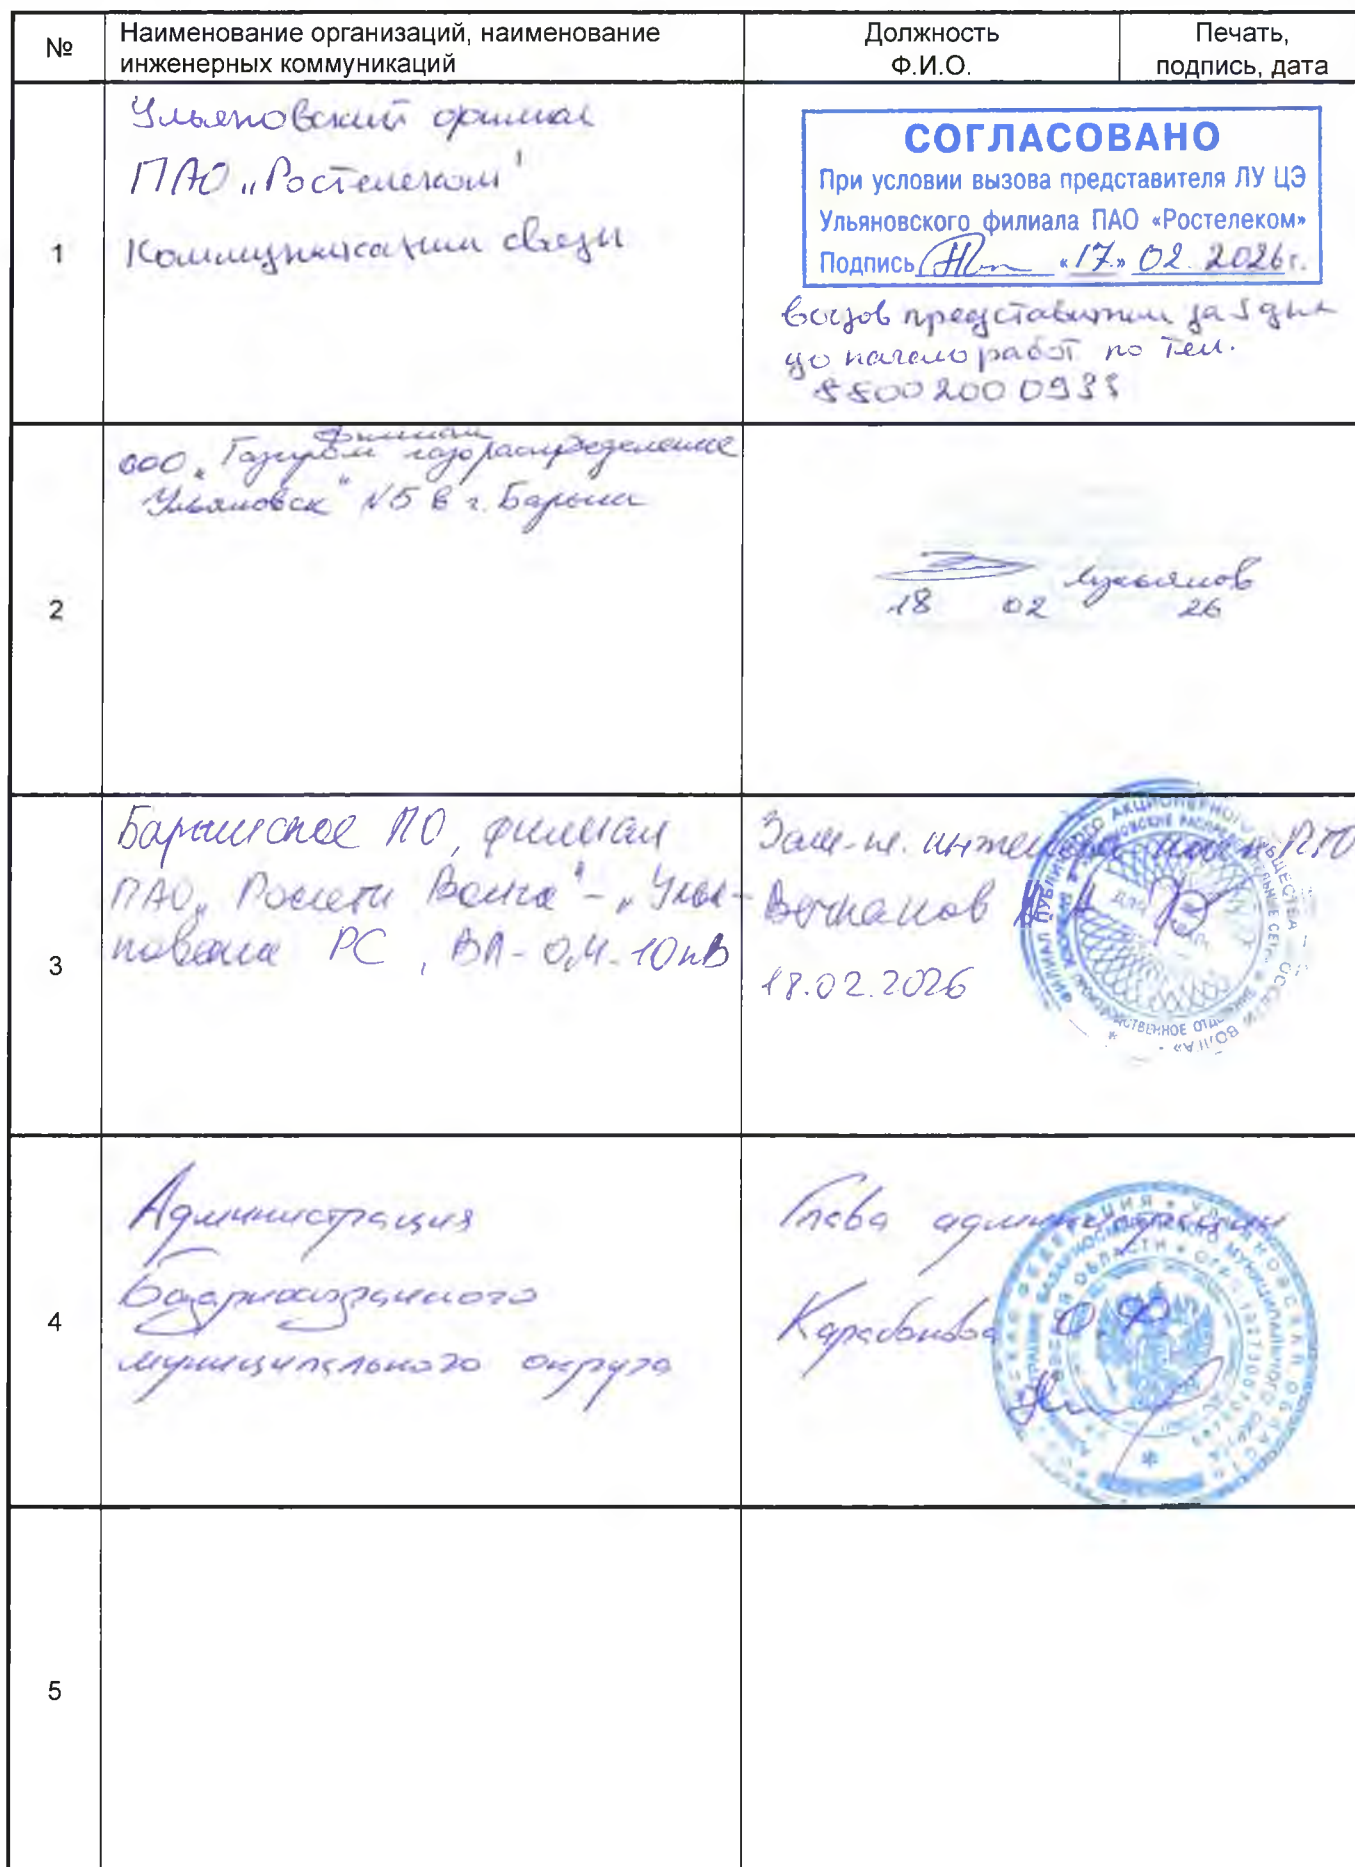 №
Наименование организаций, наименование
инженерных коммуникаций
Должность
Ф.И.О.
Печать,
подпись, дата
1
Ульяновский филиал
ПАО „Ростелеком"
Коммуникации связи
СОГЛАСОВАНО
При условии вызова представителя ЛУ ЦЭ
Ульяновского филиала ПАО «Ростелеком»
Подпись «17» 02 2026 г.
вызов представителя за 3 дня
до начало работ по тел.
8 800 200 0933
2
филиал
ООО „Газпром газораспределение
Ульяновск" №5 в г. Барыш
Лукьянов
18 02 26
3
Барышское ПО, филиал
ПАО „Россети Волга" - „Улья-
новские РС, ВЛ-0,4-10кВ
Зам. гл. инженера ПТО
18.02.2026
ФИЛИАЛ ПУБЛИЧНОГО АКЦИОНЕРНОГО ОБЩЕСТВА
ВОЛГА»
4
Администрация
Базарносызганского
муниципального округа
Глава администрации
О.Ф.
5